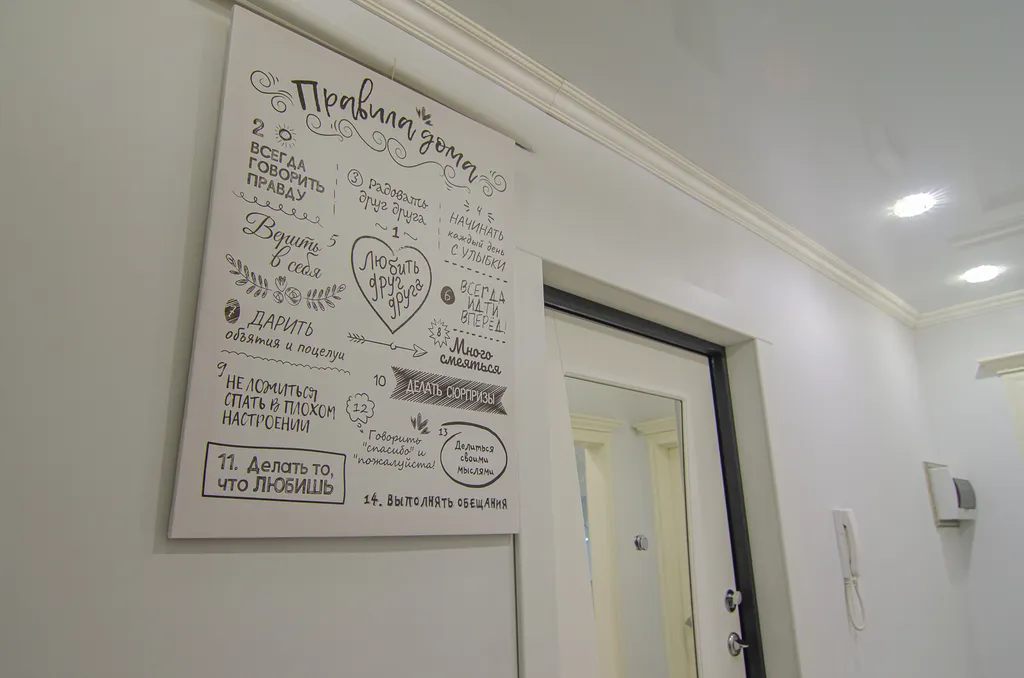 Правила дома
2
ВСЕГДА
ГОВОРИТЬ
ПРАВДУ
3 РАДОВАТЬ
друг друга
4
НАЧИНАТЬ
каждый день
С УЛЫБКИ
1
Любить
друг
друга
Верить 5
в себя
6 ВСЕГДА
ИДТИ
ВПЕРЕД!
7 ДАРИТЬ
объятия и поцелуи
8 Много
смеяться
9 НЕ ЛОЖИТЬСЯ
СПАТЬ В ПЛОХОМ
НАСТРОЕНИИ
10 ДЕЛАТЬ СЮРПРИЗЫ
11. Делать то,
что ЛЮБИШЬ
12
Говорить
"спасибо" и
"пожалуйста!
13
Делиться
своими
мыслями
14. ВЫПОЛНЯТЬ ОБЕЩАНИЯ